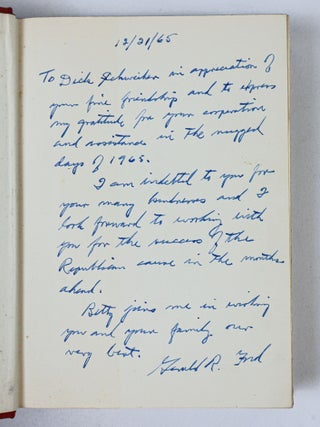 12/31/65
To Dick Schweiker in appreciation of
your fine friendship and to express
my gratitude for your cooperation
and assistance in the rugged
days of 1965.
I am indebted to you for
your many kindnesses and I
look forward to working with
you for the success of the
Republican cause in the months
ahead.
Betty joins me in wishing
you and your family our
very best.
Gerald R. Ford